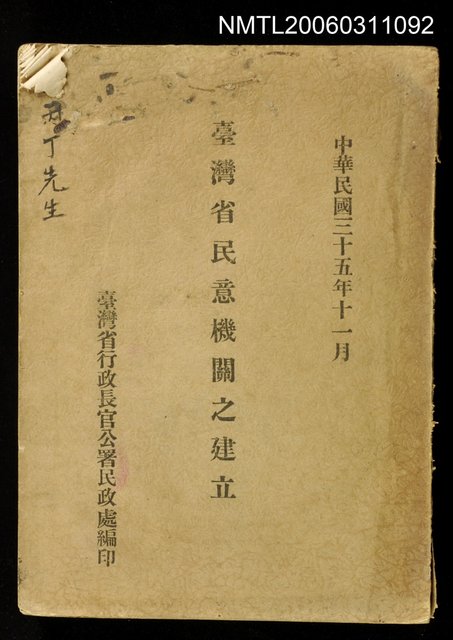 NMTL20060311092
中華民國三十五年十一月
臺灣省民意機關之建立
臺灣省行政長官公署民政處編印
丁先生